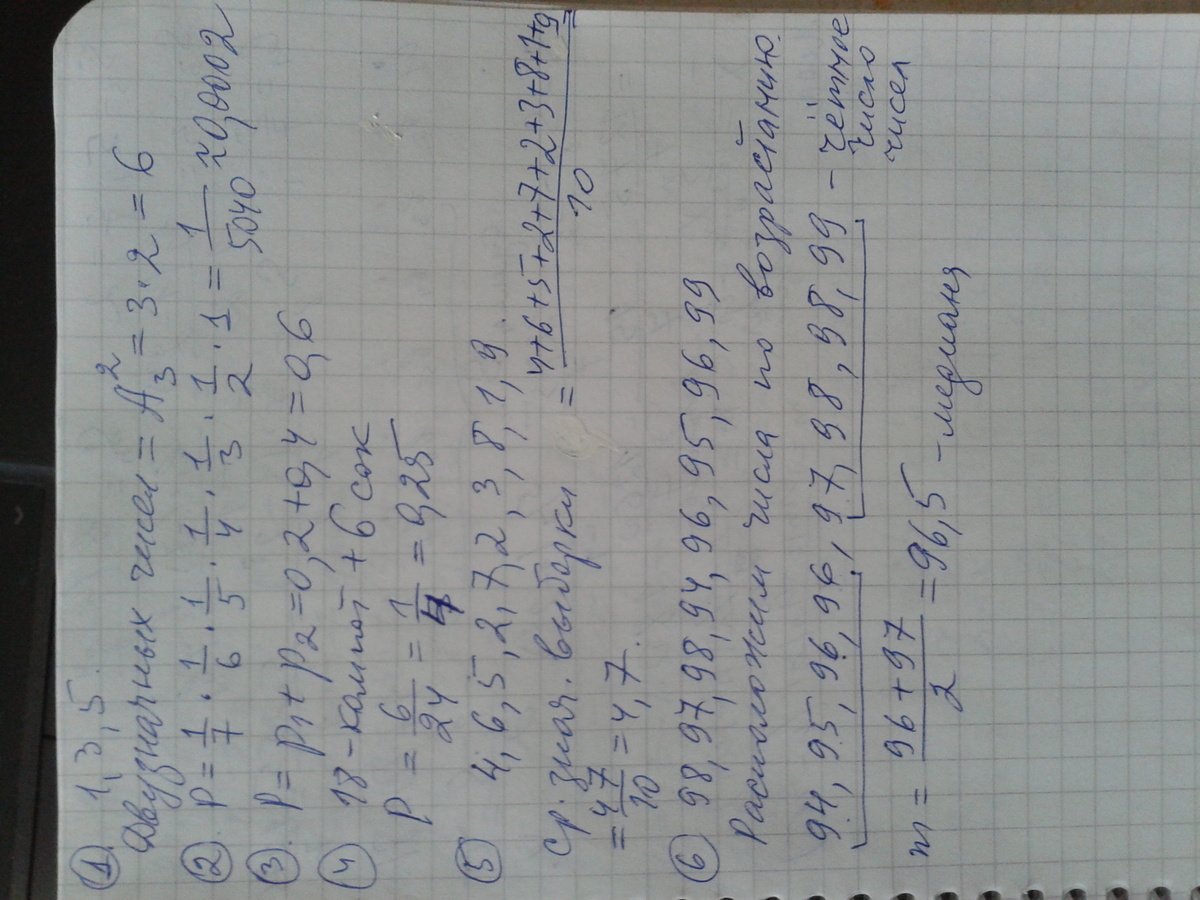 ① 1, 3, 5.
Двузначных чисел = A₃² = 3·2 = 6
② P = 1/7 · 1/6 · 1/5 · 1/4 · 1/3 · 1/2 · 1 = 1/5040 ≈ 0,0002
③ P = P₁ + P₂ = 0,2 + 0,4 = 0,6
④ 18 - компот + 6 сок
P = 6/24 = 1/4 = 0,25
⑤ 4, 6, 5, 2, 7, 2, 3, 8, 1, 9
ср. знач. выборки = (4+6+5+2+7+2+3+8+1+9)/10 =
= 47/10 = 4,7.
⑥ 98, 97, 98, 94, 96, 95, 96, 99
Расположим числа по возрастанию.
94, 95, 96, 96, 97, 98, 98, 99 - чётное
число
чисел
m = (96 + 97)/2 = 96,5 - медиана